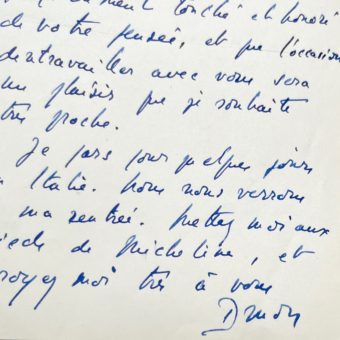 ment touché et honoré
de votre pensée, et que l'occasion
de travailler avec vous sera
un plaisir que je souhaite
très proche.
Je pars pour quelques jours
Italie. Nous nous verrons
ma rentrée. Mettez moi aux
pieds de Micheline, et
croyez moi très à vous